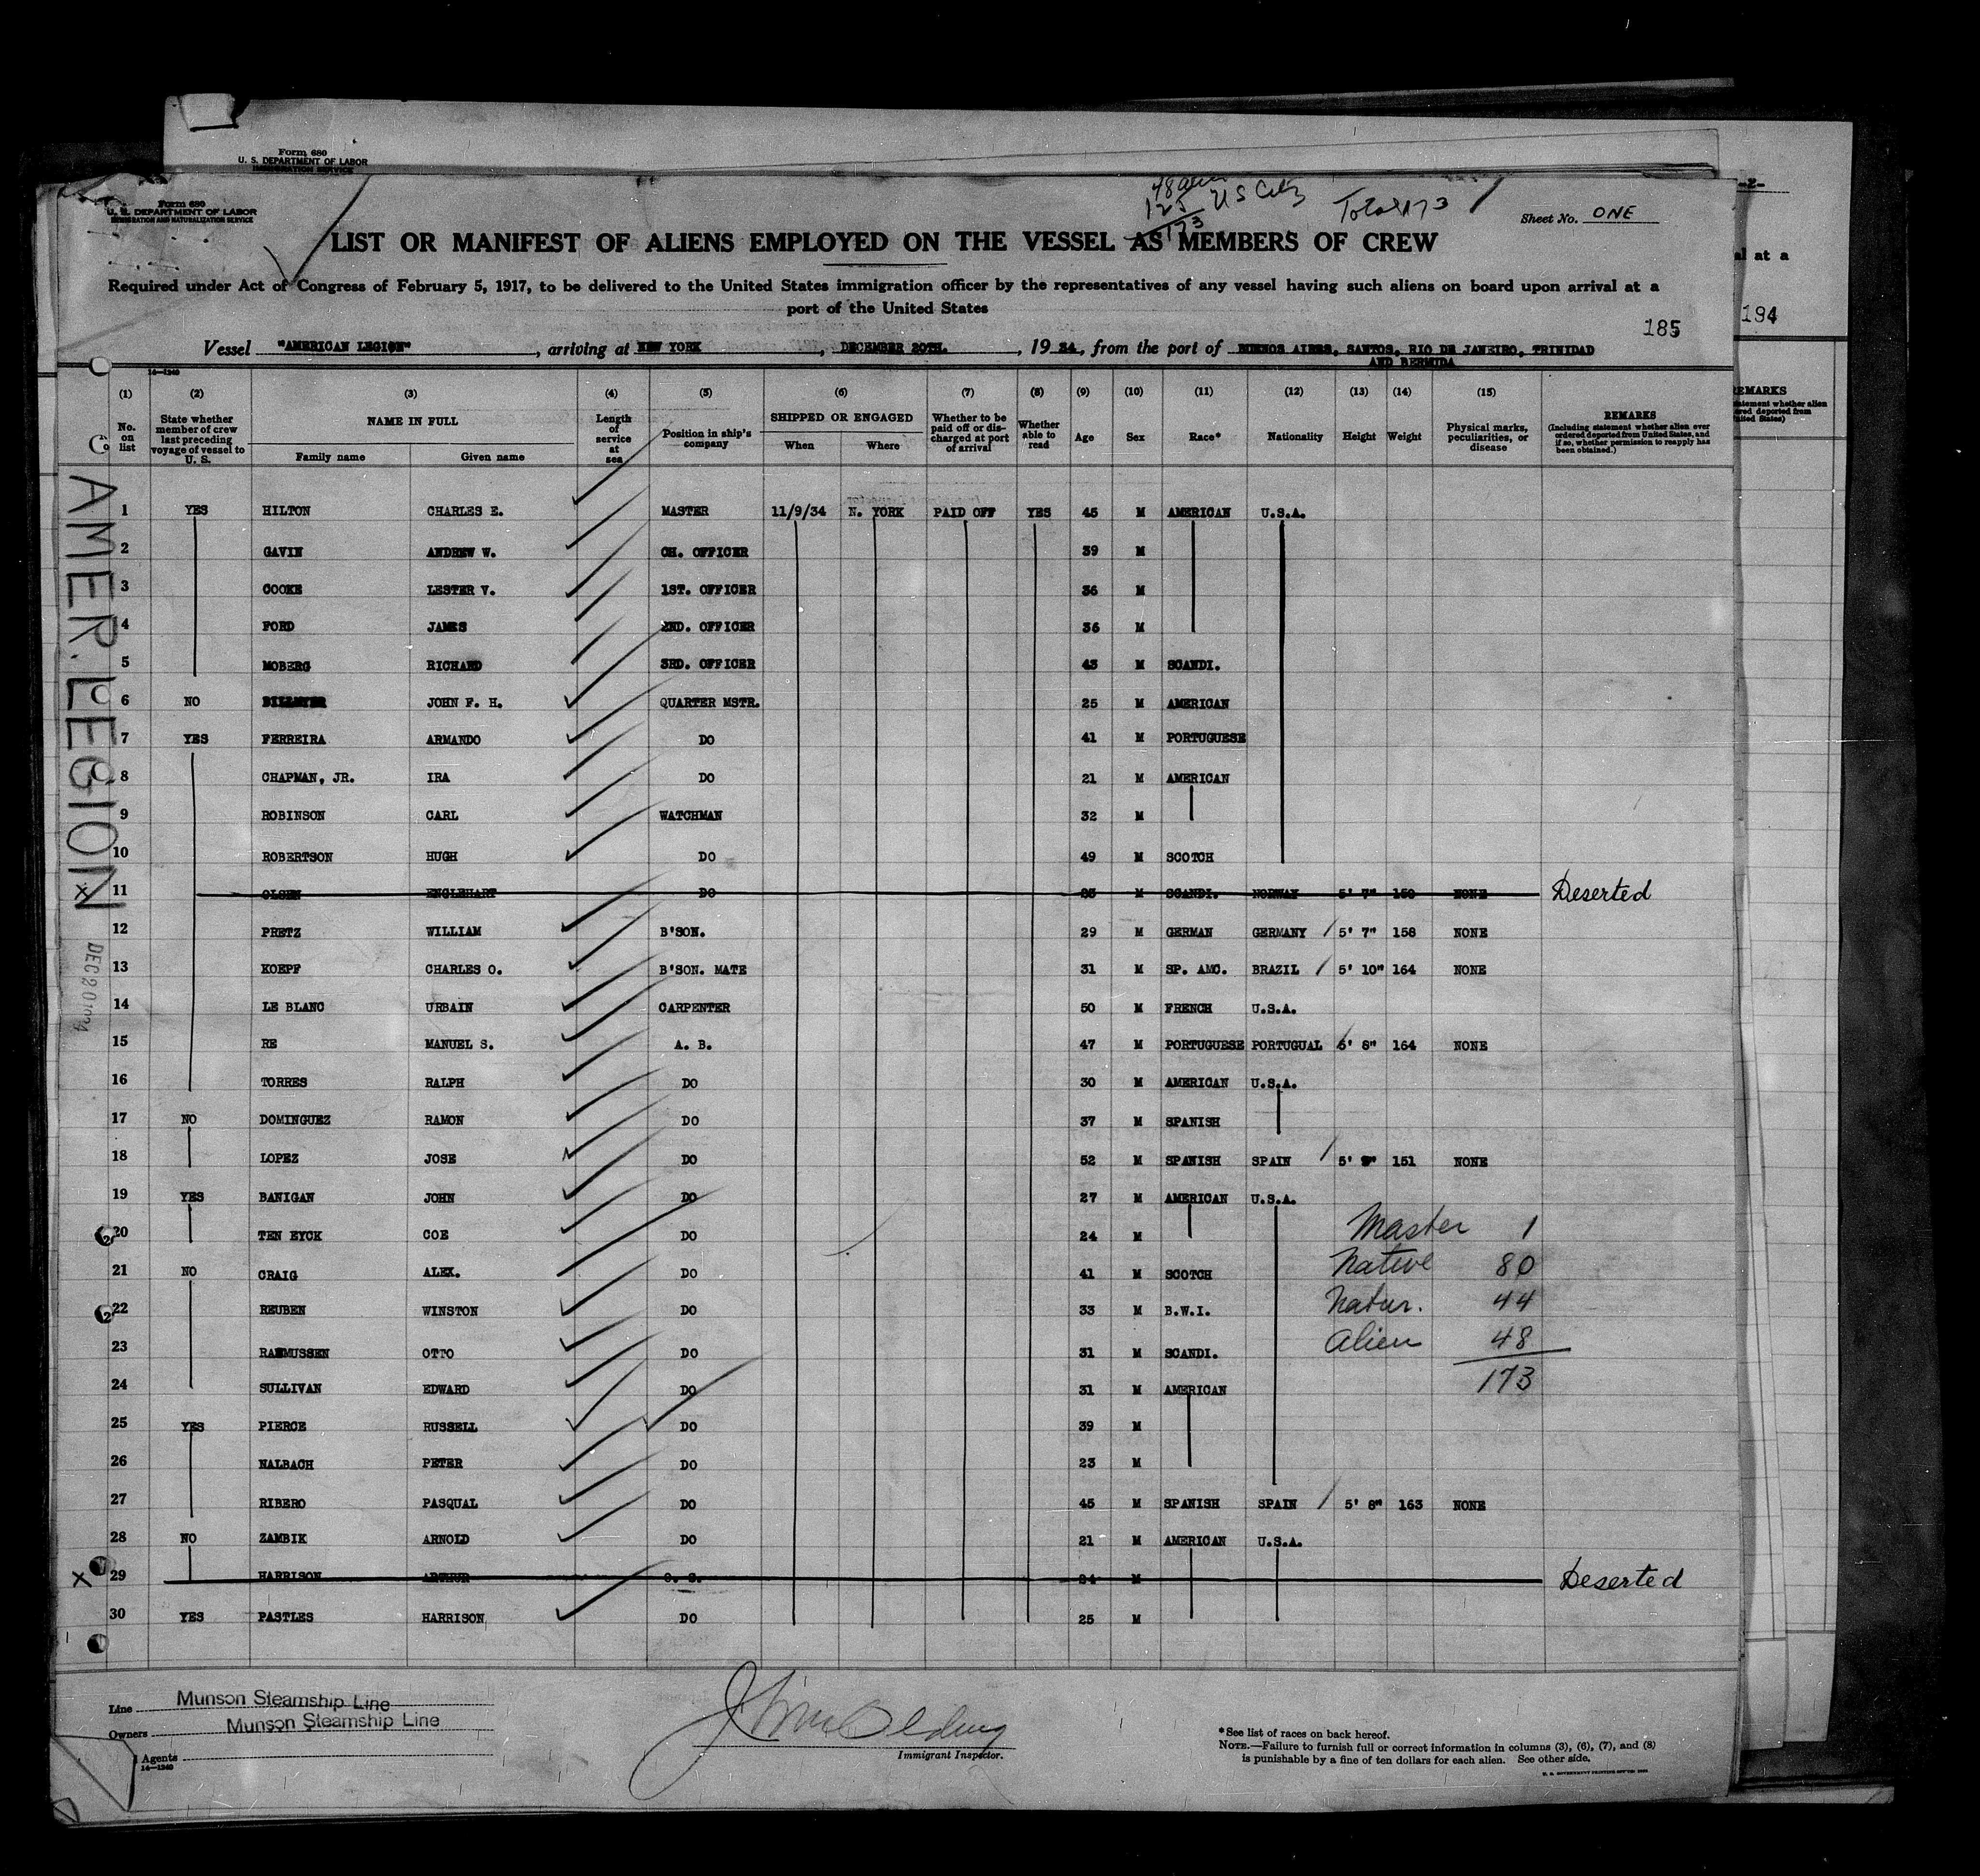 Form 680
U. S. DEPARTMENT OF LABOR
IMMIGRATION SERVICE
-2-
Form 680
U. S. DEPARTMENT OF LABOR
IMMIGRATION AND NATURALIZATION SERVICE
48 alien
125 US Citz
173
Total 173
Sheet No. ONE
LIST OR MANIFEST OF ALIENS EMPLOYED ON THE VESSEL AS MEMBERS OF CREW
Required under Act of Congress of February 5, 1917, to be delivered to the United States immigration officer by the representatives of any vessel having such aliens on board upon arrival at a
port of the United States
al at a
185
194
Vessel "AMERICAN LEGION", arriving at NEW YORK, DECEMBER 20TH., 19 34, from the port of BUENOS AIRES, SANTOS, RIO DE JANEIRO, TRINIDAD
AND BERMUDA
14—1240
(1) (2) (3) (4) (5) (6) (7) (8) (9) (10) (11) (12) (13) (14) (15)
No. on list
State whether member of crew last preceding voyage of vessel to U. S.
NAME IN FULL
Family name Given name
Length of service at sea
Position in ship's company
SHIPPED OR ENGAGED
When Where
Whether to be paid off or discharged at port of arrival
Whether able to read
Age Sex Race* Nationality Height Weight
Physical marks, peculiarities, or disease
REMARKS
(Including statement whether alien ever ordered deported from United States, and if so, whether permission to reapply has been obtained.)
AMER. LEGION
DEC 20 1934
1 YES HILTON CHARLES E. MASTER 11/9/34 N. YORK PAID OFF YES 45 M AMERICAN U.S.A.
2 GAVIN ANDREW W. CH. OFFICER 39 M
3 COOKE LESTER V. 1ST. OFFICER 36 M
4 FORD JAMES 2ND. OFFICER 36 M
5 MOBERG RICHARD 3RD. OFFICER 43 M SCANDI.
6 NO JOHN F. H. QUARTER MSTR. 25 M AMERICAN
7 YES FERREIRA ARMANDO DO 41 M PORTUGUESE
8 CHAPMAN, JR. IRA DO 21 M AMERICAN
9 ROBINSON CARL WATCHMAN 32 M
10 ROBERTSON HUGH DO 49 M SCOTCH
X 11 OLSEN ENGLEHART DO M SCANDI. NORWAY 5' 7" 150 NONE Deserted
12 PRETZ WILLIAM B'SON. 29 M GERMAN GERMANY 5' 7" 158 NONE
13 KOEPF CHARLES O. B'SON. MATE 31 M SP. AMC. BRAZIL 5' 10" 164 NONE
14 LE BLANC URBAIN CARPENTER 50 M FRENCH U.S.A.
15 RE MANUEL S. A. B. 47 M PORTUGUESE PORTUGUAL 5' 8" 164 NONE
16 TORRES RALPH DO 30 M AMERICAN U.S.A.
17 NO DOMINGUEZ RAMON DO 37 M SPANISH
18 LOPEZ JOSE DO 52 M SPANISH SPAIN 5' 151 NONE
19 YES BANIGAN JOHN DO 27 M AMERICAN U.S.A.
20 TEN EYCK COE DO 24 M
21 NO CRAIG ALEX. DO 41 M SCOTCH
22 REUBEN WINSTON DO 33 M B.W.I.
23 RASMUSSEN OTTO DO 31 M SCANDI.
24 SULLIVAN EDWARD DO 31 M AMERICAN
25 YES PIERCE RUSSELL DO 39 M
26 NALBACH PETER DO 23 M
27 RIBERO PASQUAL DO 45 M SPANISH SPAIN 5' 8" 163 NONE
28 NO ZAMBIK ARNOLD DO 21 M AMERICAN U.S.A.
X 29 HARRISON ARTHUR O. S. 24 M Deserted
30 YES PASTLES HARRISON DO 25 M
Master 1
Native 80
Natur. 44
Alien 48
173
Line Munson Steamship Line
Owners Munson Steamship Line
Agents
14—1240
Immigrant Inspector.
*See list of races on back hereof.
NOTE.—Failure to furnish full or correct information in columns (3), (6), (7), and (8)
is punishable by a fine of ten dollars for each alien. See other side.